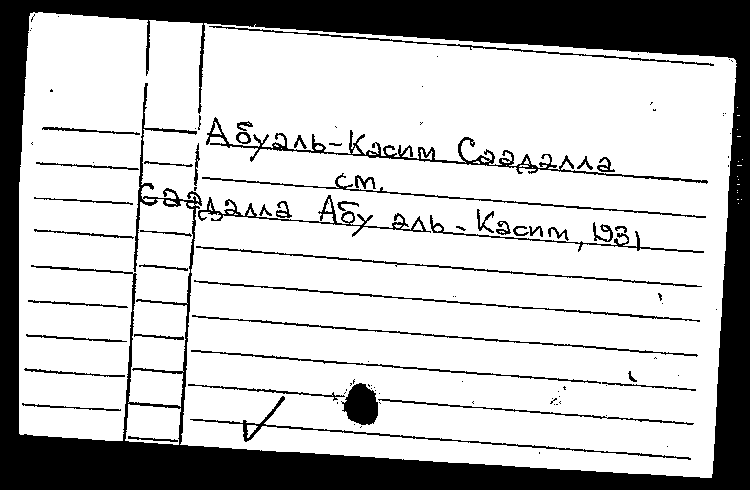 Абуаль-Касим Саадалла
см.
Саадалла Абу аль-Касим, 1931